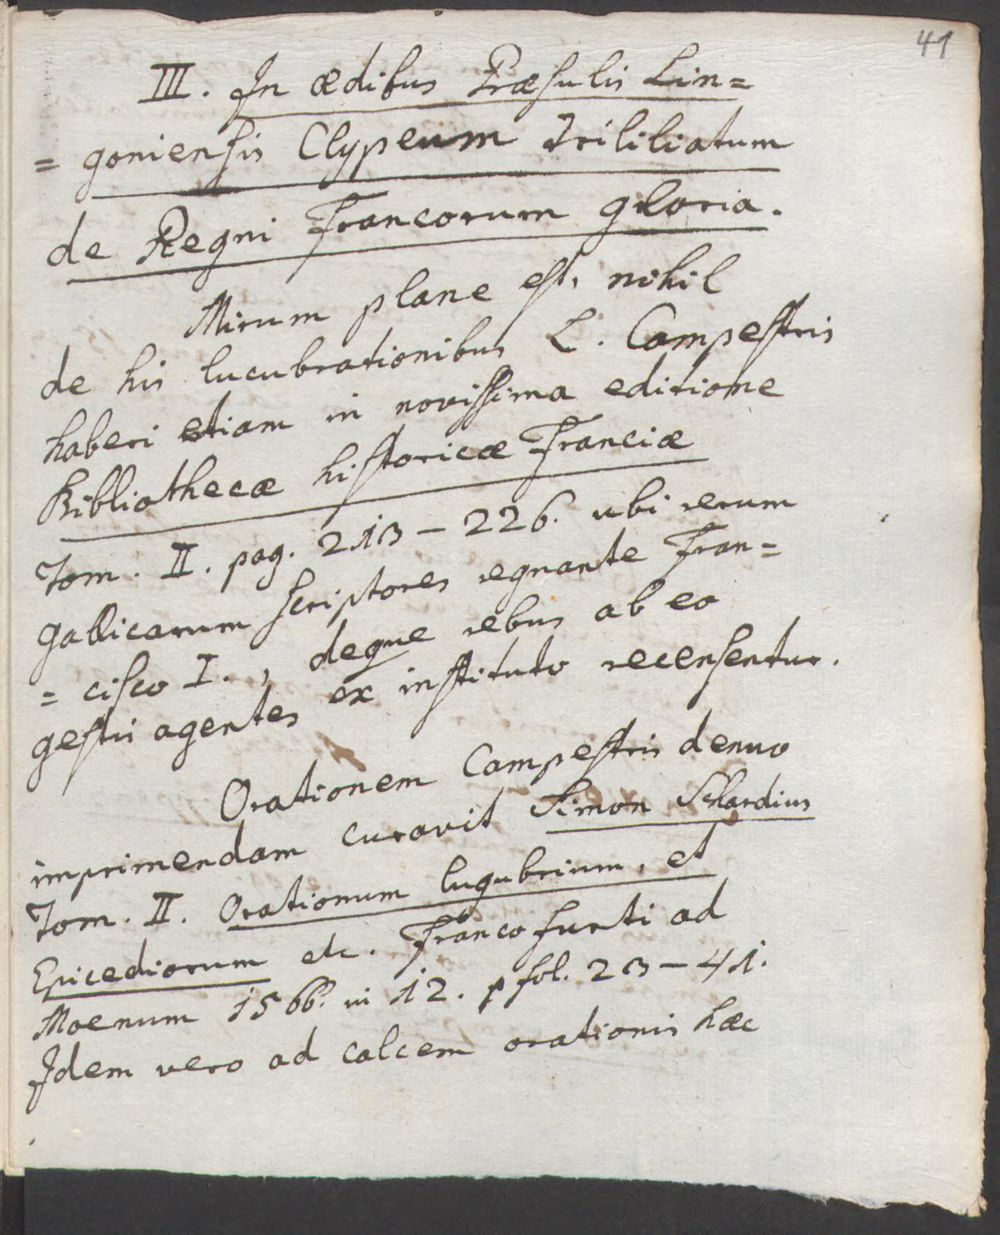 41
III. In ædibus Præsulis Lin=
= goniensis Clypeum Trililiatum
de Regni Francorum gloria.
Mirum plane est, nihil
de his lucubrationibus L. Campestris
haberi etiam in novissima editione
Bibliothecæ historicæ Franciæ
Tom. II. pag. 213 – 226. ubi rerum
Gallicarum scriptores regnante Fran=
= cisco I., deque rebus ab eo
gestis agentes ex instituto recensentur.
Orationem Campestris denuo
imprimendam curavit Simon Schardius
Tom. II. Orationum lugubrium, et
Epicediorum etc. Francofurti ad
Moenum 1566. in 12. p fol. 23 – 41.
Idem vero ad calcem orationis hæc